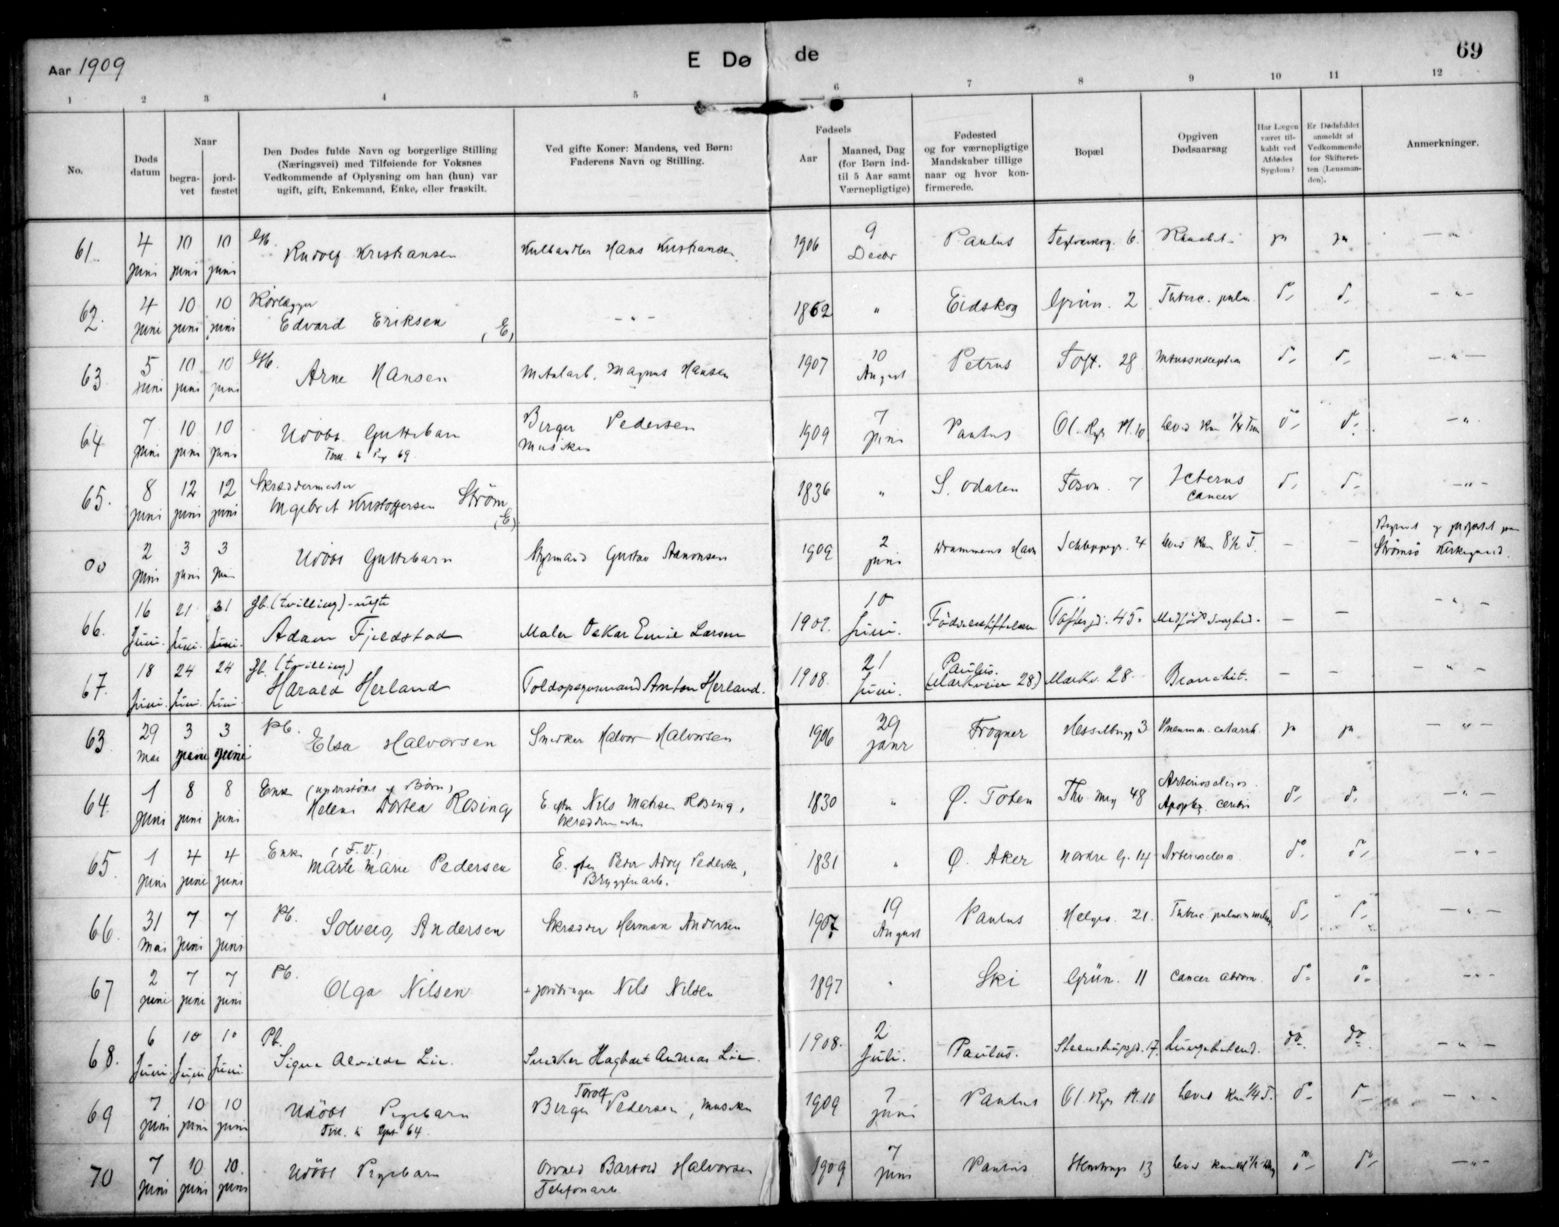 Aar 1909
E Døde
69
1 2 3 4 5 6 7 8 9 10 11 12
No.
Døds datum
Naar
begravet
jordfæstet
Den Dødes fulde Navn og borgerlige Stilling (Næringsvei) med Tilføiende for Voksnes Vedkommende af Oplysning om han (hun) var ugift, gift, Enkemand, Enke, eller fraskilt.
Ved gifte Koner: Mandens, ved Børn: Faderens Navn og Stilling.
Fødsels
Aar
Maaned, Dag (for Børn indtil 5 Aar samt Værnepligtige)
Fødested og for værnepligtige Mandskaber tillige naar og hvor konfirmerede.
Bopæl
Opgiven Dødsaarsag
Har Lægen været tilkaldt ved Afdødes Sygdom?
Er Dødsfaldet anmeldt af Vedkommende for Skifteretten (Lensmanden).
Anmerkninger.
61. 4 juni 10 juni 10 juni Gb. Rudolf Kristiansen Kulhandler Hans Kristiansen 1906 9 Decbr Paulus 6. ja ja — " —
62. 4 juni 10 juni 10 juni Edvard Eriksen (E) — " — 1862 " Eidskog Grün. 2 Tuberc. pulm d- d- — " —
63. 5 juni 10 juni 10 juni Gb. Arne Hansen Metalarb. Magnus Hansen 1907 10 August Petrus Toft. 28 d- d- — " —
64. 7 juni 10 juni 10 juni Udøbt Guttebarn Birger Pedersen 1909 7 juni Paulus Ol. Rys Pl. 10 Levd kun 1/4 Time d- d- "
Tvil. 69
Musiker
65. 8 juni 12 juni 12 juni Skræddermester Ingebret Kristoffersen Strøm (E) 1836 " S. Odalen Fossv. 7 Icterus cancer d- d- — " —
00 2 juni 3 juni 3 juni Udøbt Guttebarn Styrmand Gustav Aanonsen 1909 2 juni Drammens Havn 4 Levd kun 8½ T. — — Strømsø Kirkegaard.
66. 16 Juni. 21 Juni. 21 Juni. Gb. (tvilling) Adam Fjeldstad Maler Oskar Emil Larsen 190 10 Juni. Fødselsstiftelsen Toftesgd. 45. Medfødt Svaghed. — — — " —
67. 18 Juni. 24 Juni. 24 Juni. Gb. (tvilling) Harald Herland Toldopsynsmand Anton Herland. 1908. 21 Juni. Paulus. (Markveien 28) Markv. 28. Bronchit. — — — " —
63. 29 mai 3 juni 3 juni Pb. Elsa Halvorsen Snedker Halvor Halvorsen 1906 29 janr Frogner 3 Pneumon. catarrh. ja ja — " —
64. 1 juni 8 juni 8 juni Enke Helene Dortea Rosing E. efter Nils Rosing, Skræddermester 1830 " Ø. Toten Thv. Mey 48 Arterioscleros. Apoplex. cerebri d- d- — " —
65. 1 juni 4 juni 4 juni Enke (F.V.) Marte Marie Pedersen E. efter Peder Adolf Pedersen, Bryggeriarb. 1831 " Ø. Aker Nordre G. 14 d- d- — " —
66. 31 mai 7 juni 7 juni Pb. Solveig Andersen Skrædder Herman Andersen 1907 19 August Paulus Helges. 21. d- d- — " —
67 2 juni 7 juni 7 juni Pb. Olga Nilsen Nils Nilsen 1897 " Ski Grün. 11 Cancer abdom. d- d- — " —
68. 6 Juni. 10 Juni 10 Juni Pb. Signe Alvilde Lie. Snedker Hagbart Andreas Lie. 1908. 2 Juli. Paulus. Steenstrupsgd. 17. do do — " —
69 7 juni 10 juni 10 juni Udøbt Pigebarn Birger Torolf Pedersen, Musiker 1909 7 juni Paulus Ol. Rys Pl. 10 Levd kun 1/4 T. d- d- — " —
64.
70 7 juni 10 juni 10 juni Udøbt Pigebarn Halvorsen Telefonarb 1909 7 juni Paulus 13 d- d- — " —